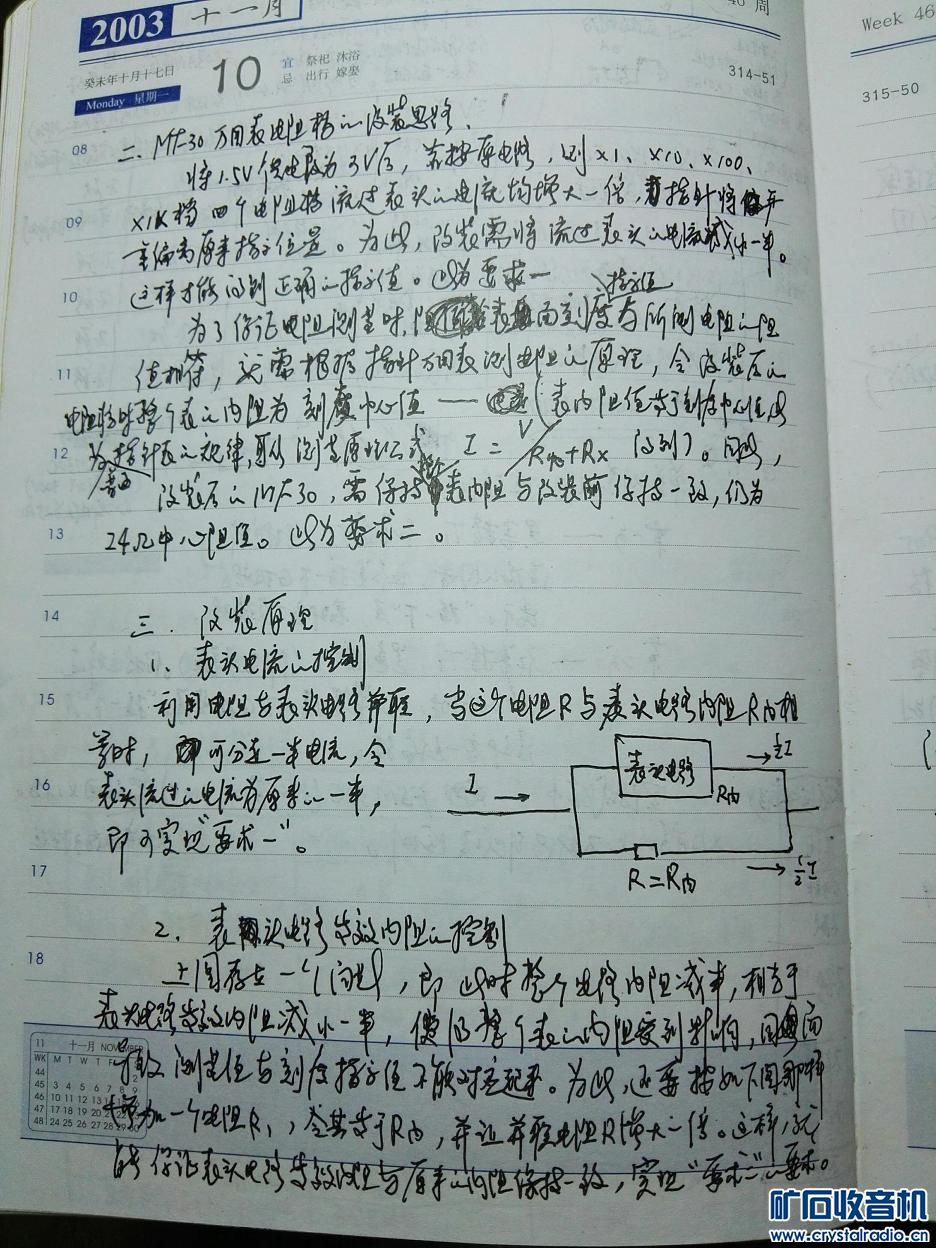 2003 十一月
46 周
Week 46
癸未年十月十七日
Monday 星期一
10
宜 祭祀 沐浴
忌 出行 嫁娶
314-51
315-50
08
二、MF-30万用表电阻档的改装思路、
将1.5V供电改为3V后，若按原电路，则×1、×10、×100、
09
×1K档四个电阻档流过表头的电流均增大一倍，指针将
严重偏离原来指示位置。为此，改装需将流过表头的电流减小一半。
10
这样才能得到正确的指示值。此为要求一
指示值
为了保证电阻测量时，表面刻度与所测电阻的阻
11
值相符，还需根据指针万用表测电阻的原理，令改装后的
电阻档时整个表的内阻为刻度中心值——（表内阻值等于刻度中心值此
12
为指针表的规律，可从测量原始公式 I = V/R内+Rx 得到）。因此，
改装后的MF30，需保持表内阻与改装前保持一致，仍为
13
24Ω中心阻值。此为要求二。
14
三、改装原理
1、表头电流的控制
15
利用电阻与表头电路并联，当这个电阻R与表头电路内阻R内相
等时，即可分走一半电流，令
16
表头流过的电流为原来的一半，
即可实现"要求一"。
I
表头电路
R内
½I
R=R内
½I
17
2、表头电路等效内阻的控制
18
上图存在一个问题，即此时整个电路内阻减半，相当于
表头电路等效内阻减小一半，使得整个表的内阻受到影响，因而
导致测量值与刻度指示值不能对应起来。为此，还要按如下图那样
增加一个电阻R1，令其等于R内，并让并联电阻R增大一倍。这样，就
能保证表头电路等效内阻与原来的内阻保持一致，实现"要求二"的要求。
11 十一月 NOVEMBER
WK M T W T F S S
44
45 3 4 5 6 7 8 9
46 10 11 12 13 14 15 16
47 17 18 19 20 21 22 23
48 24 25 26 27 28 29 30
矿石收音机
www.crystalradio.cn